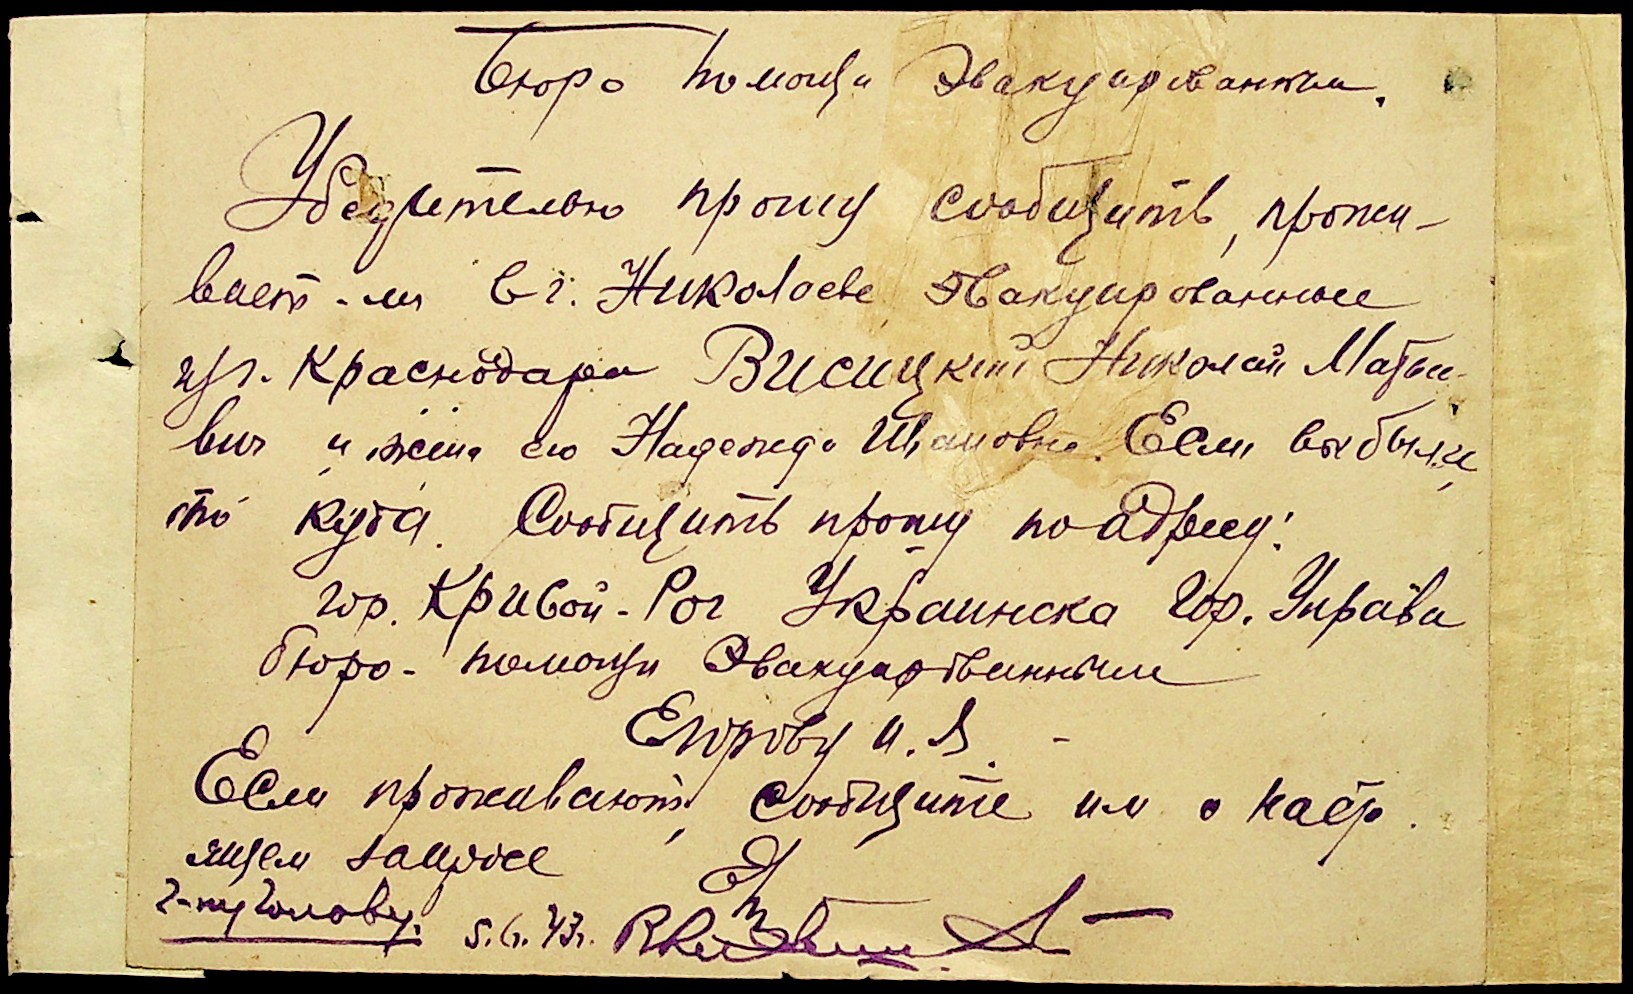 Бюро помощи Эвакуированным.
Убедительно прошу сообщить, прожи-
вают-ли в г. Николаеве эвакуированные
из г. Краснодара Висицкий Николай Матвее-
вич и жена его Надежда Ивановна. Если выбыли,
то куда. Сообщить прошу по адресу:
гор. Кривой-Рог Украинска Гор. Управа
бюро- помощи Эвакуированным
Егорову И. Я.
Если проживают, сообщите им о настоя-
щем запросе
г-ну Голову. 5.6.43г.